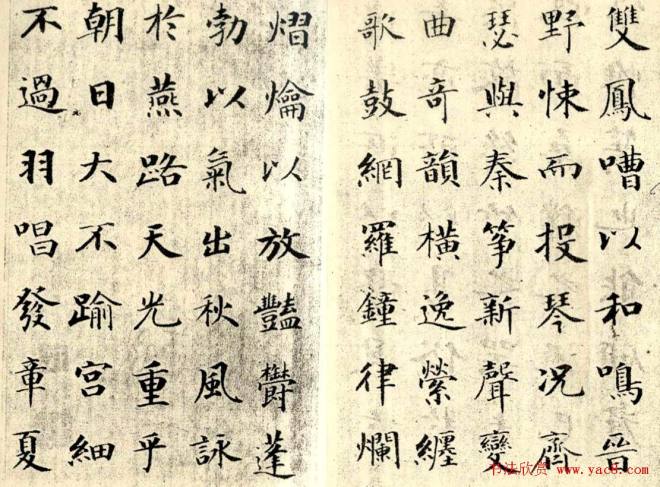 雙鳳嘈以和鳴晉
野悚而投琴况齊
瑟與秦箏新聲變
曲奇韻橫逸縈纏
歌鼓網羅鐘律爛
熠爚以放豔欝蓬
勃以氣出秋風詠
於燕路天光重乎
朝日大不踰宮細
不過羽唱發章夏
书法欣赏 www.yac8.com